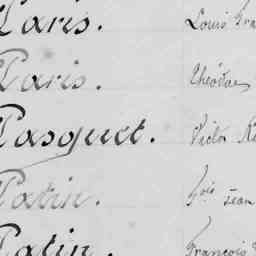 Paris. Louis
Paris. Théodore
Pasquet. Victor
Patin. Fois Jean
Patin. François